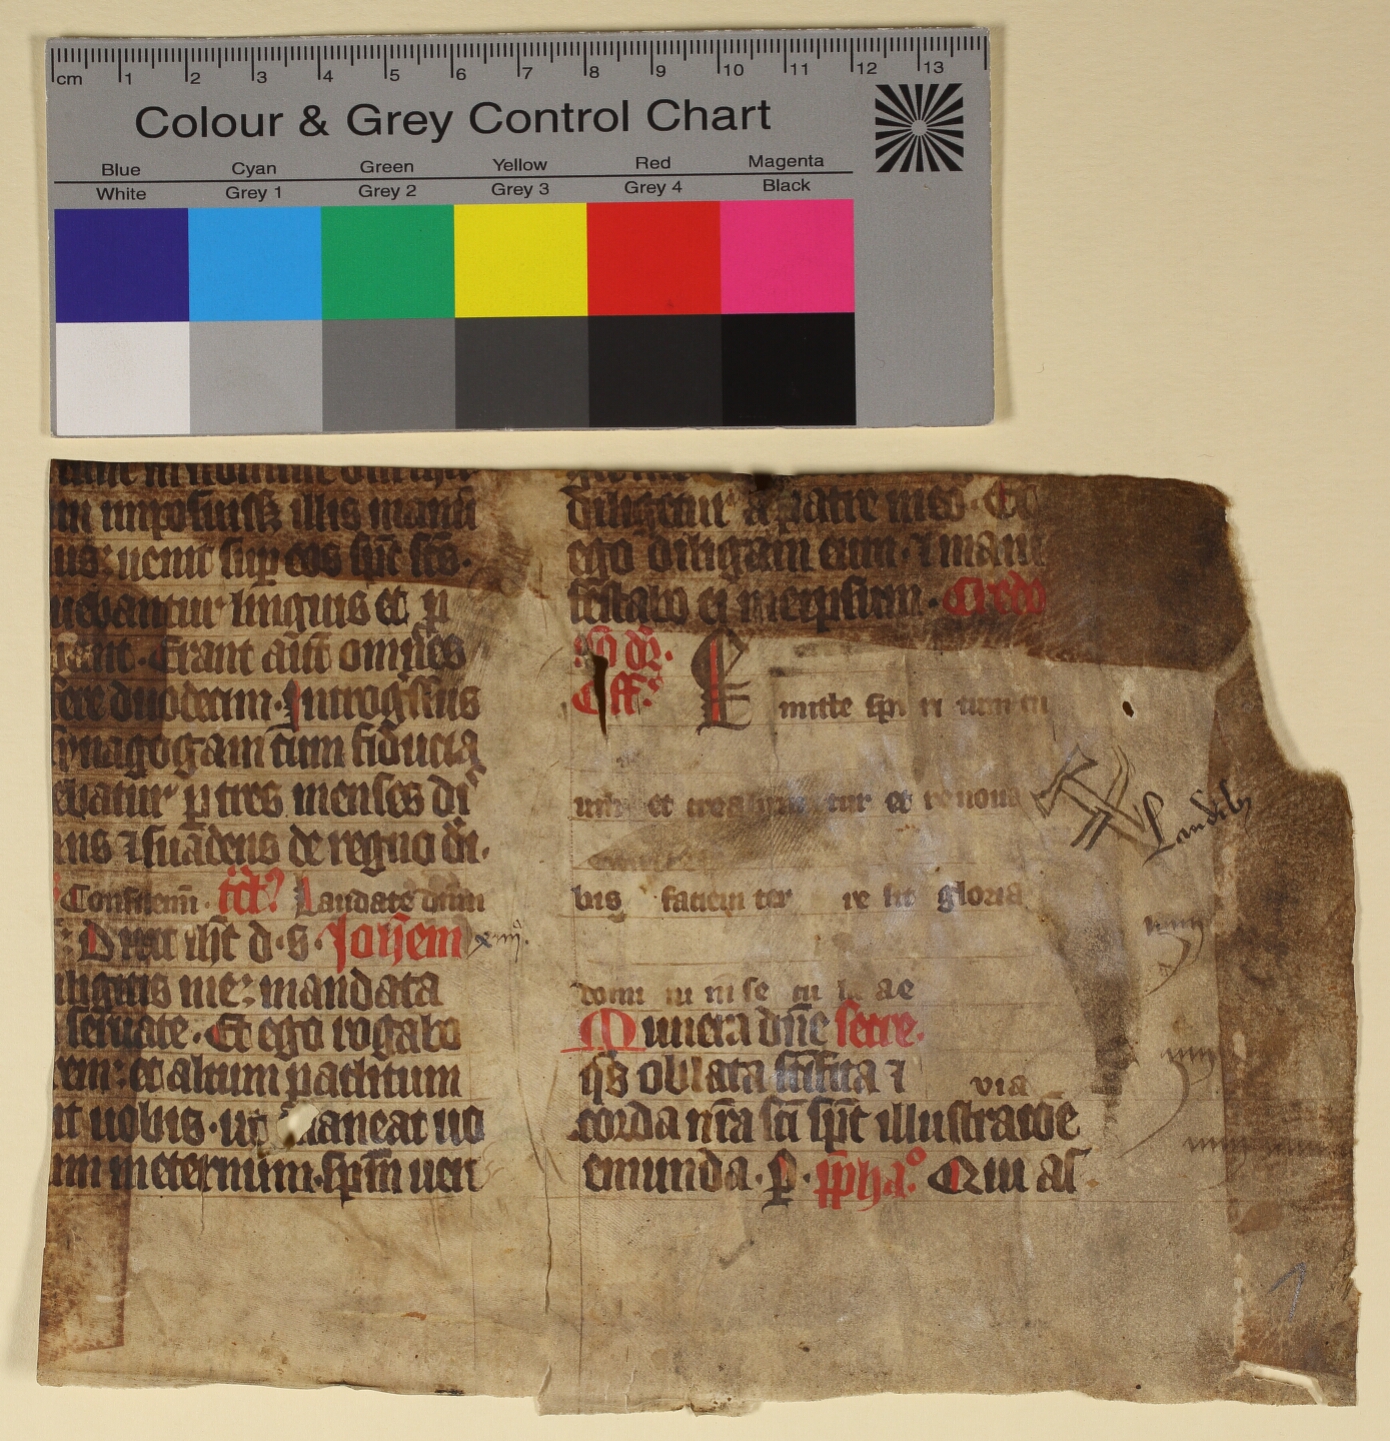 cm 1 2 3 4 5 6 7 8 9 10 11 12 13
Colour & Grey Control Chart
Blue Cyan Green Yellow Red Magenta
White Grey 1 Grey 2 Grey 3 Grey 4 Black
illis manū
us: uenit sup eos spc scs.
uebantur linguis et p
iant. Erant aūt omnes
fere duodecim. Introgressus
synagogam cum fiducia
ebatur p tres menses di
ans ⁊ suadens de regno di.
Confitemi. tct Laudate dnm
Dixit ihc d. s. Johem xiiij.
iligitis me: mandata
seruate. Et ego rogabo
rem: et alium paclitum
it uobis. ut maneat uo
um in eternum. spm ueri
diligetur a patre meo. Et
ego diligam eum. ⁊ mani
festabo ei meipsum. Credo
Off. Emitte spi ri tum tu
um et creabuntur et renoua
bis faciem ter re sit gloria
domi ni in se cu la ae
Munera dne secre.
qs oblata scifica ⁊ via
corda nra sci spc illustratoe
emunda. p. pphao Qui as
1